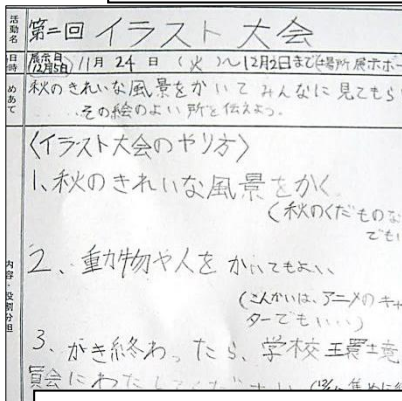 活動名
第二回 イラスト大会
日時
展示日
12月5日 11月24日(火)〜12月2日まで (場所 展示ボー
めあて
秋のきれいな風景をかいて みんなに見てもら
その絵のよい所を伝えよう。
〈イラスト大会のやり方〉
1、秋のきれいな風景をかく
(秋のくだものな
でもい
内容・役割分担
2、動物や人を かいてもよい
(こんかいは、アニメのキャ
ターでもいい)
3、かき終わったら、学校環境
員会にわたしてください